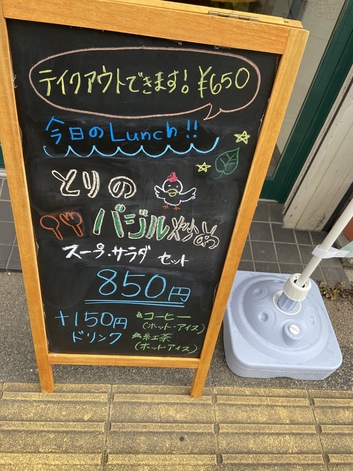 テイクアウトできます！¥650
今日のLunch!!
とりの
バジル炒め
スープ・サラダ セット
850円
+150円 コーヒー
(ホット・アイス)
ドリンク 紅茶
(ホット・アイス)